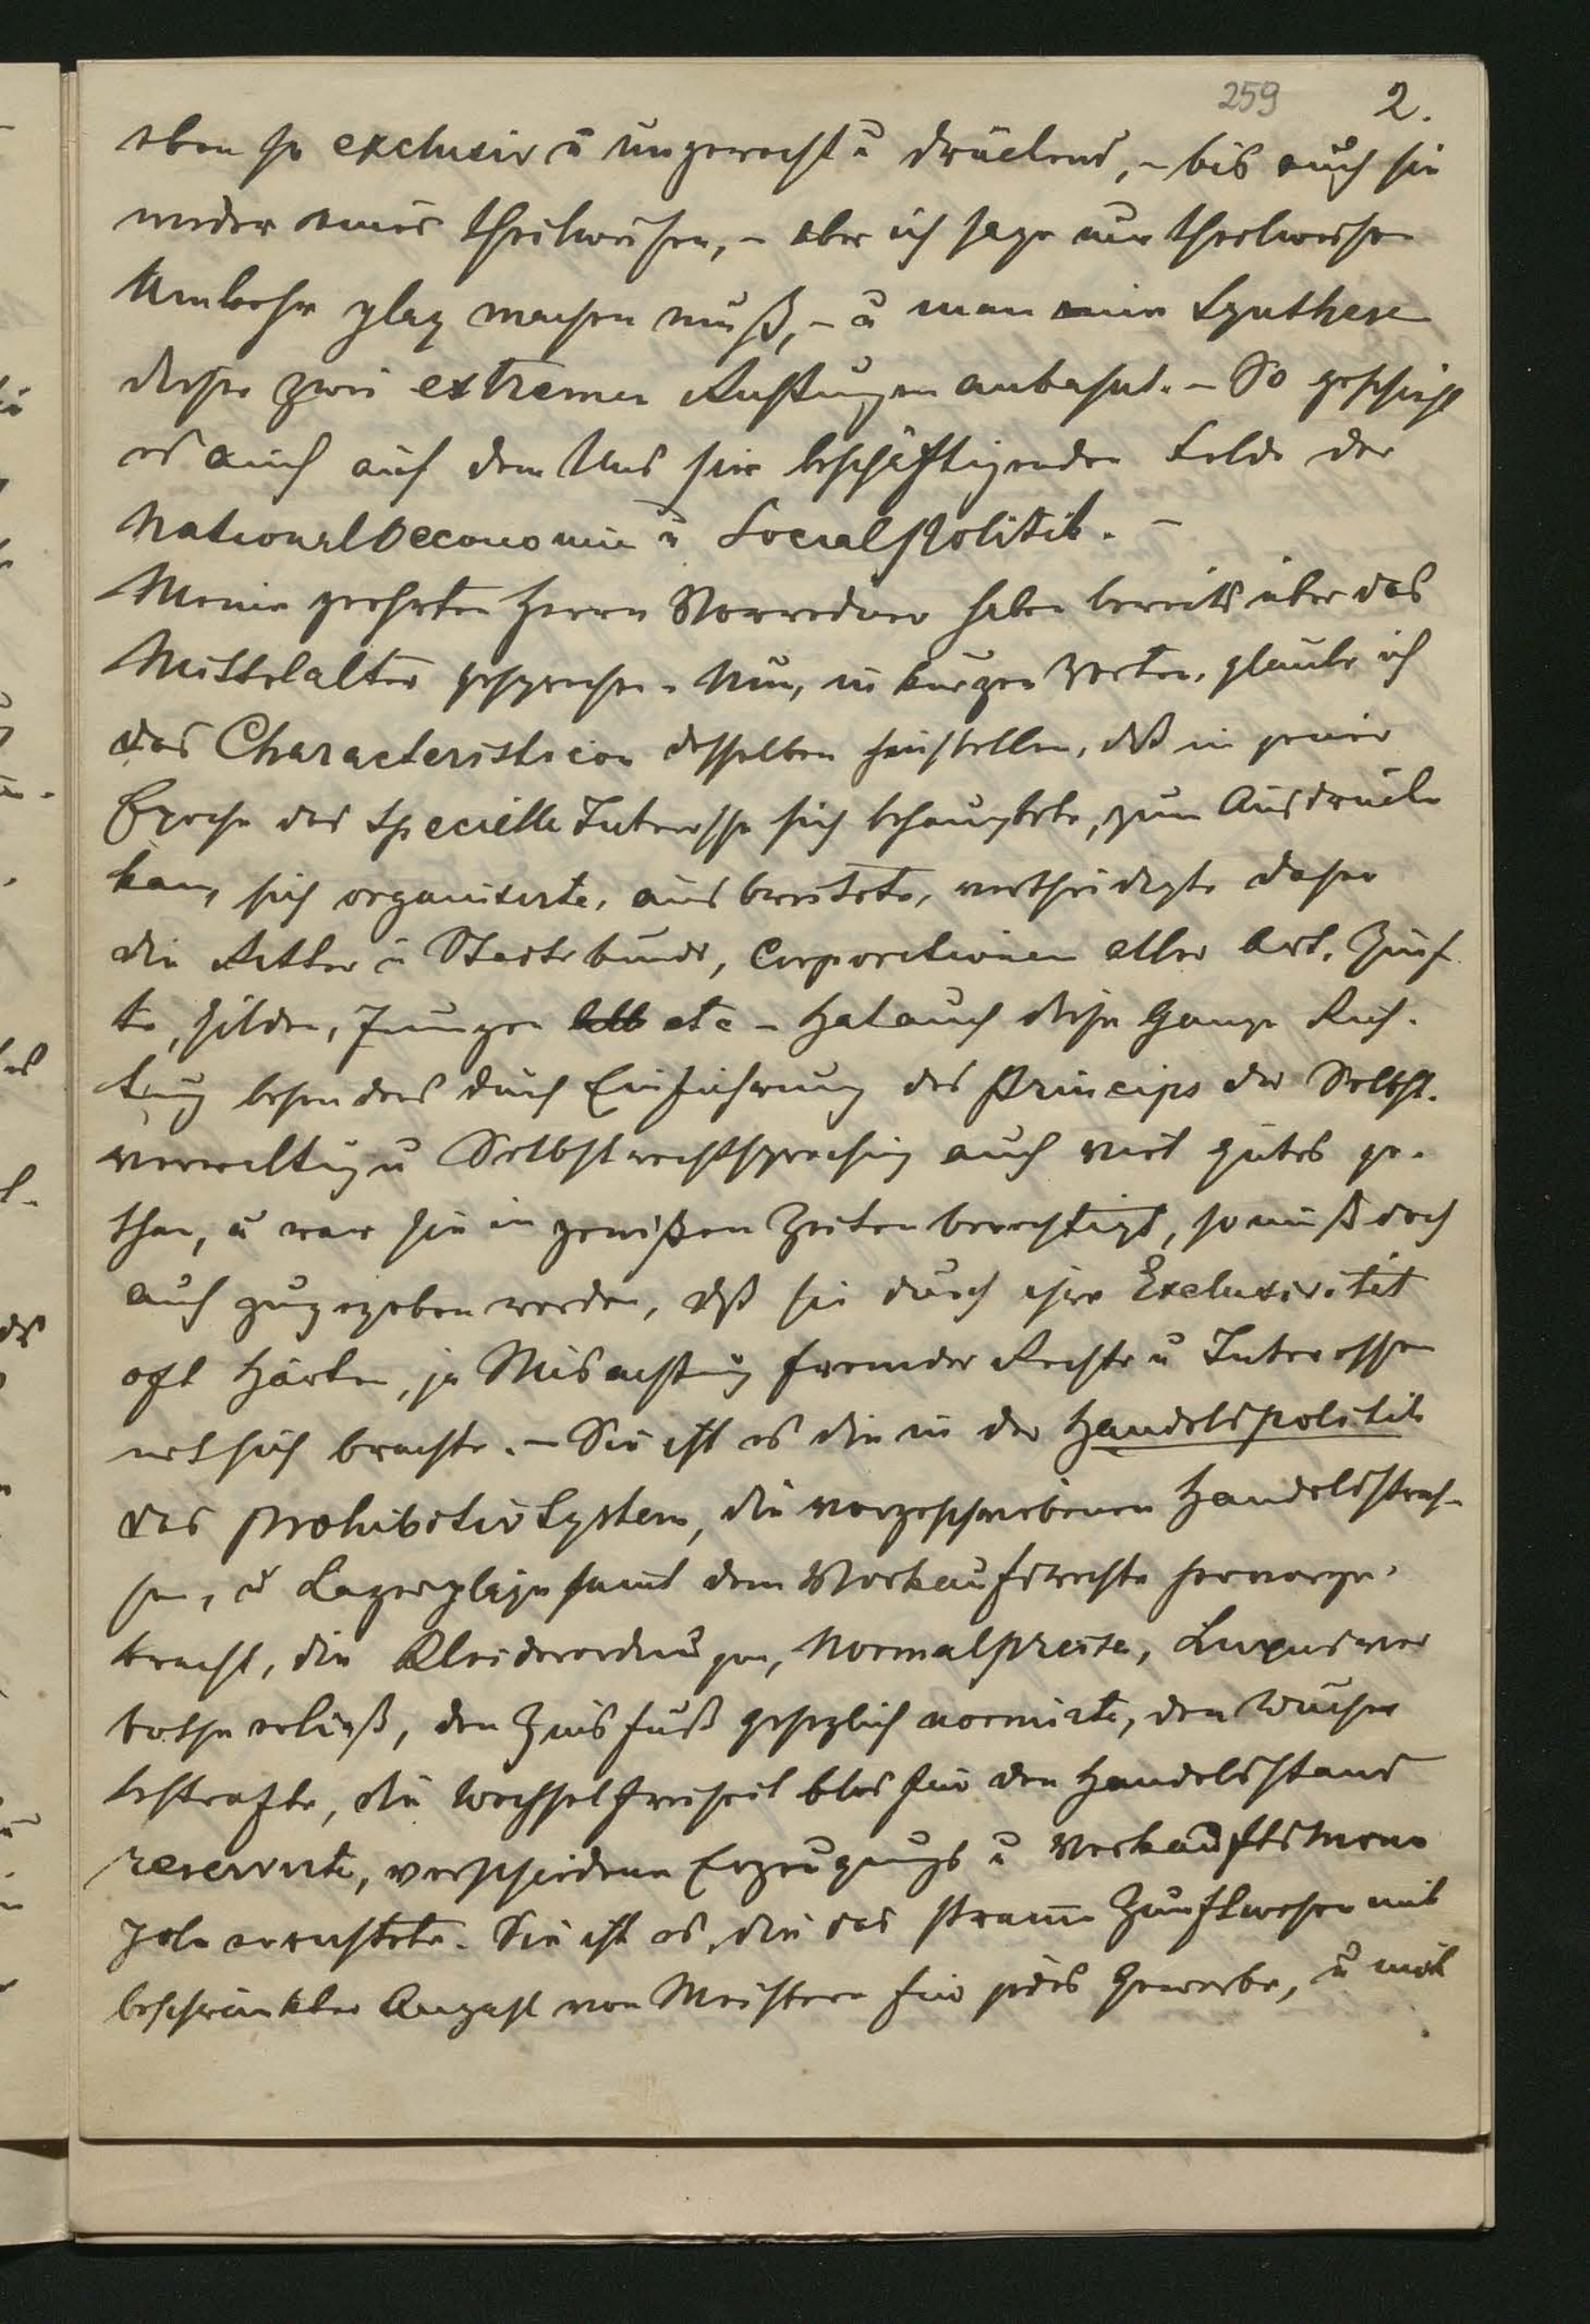 259 2.
eben so exclusiv u ungerecht u drückend, – bis auch sie
wieder einer theilweisen, – aber ich sage nur theilweisen
Umkehr plaz machen muß, – u man eine Synthese
dieser zwei extremen Richtungen anbahnt. – So geschieht
es auch auf dem Uns hier beschäftigenden Felde der
Nationaloeconomie u SocialPolitik. –
Meine geehrten Herrn Vorredner haben bereits über das
Mittelalter gesprochen. Nun, in kurzen Worten, glaube ich
das Characteristicon desselben hinstellen, daß in jener
Epoche das specielle Interesse sich behauptete, zum Ausdrucke
kam, sich organisirte, ausbreitete, vertheidigte daher
die Ritter u Stadtebunde, Corporationen aller Art, Zünf
te, Gilden, Innungen etc – Hat auch diese Ganze Rich-
tung besonders durch Einführung des Princips der Selbst-
verwaltung u Selbstrechtsprechung auch viel gutes ge-
than, u war sie in gewißen Zeiten berechtigt, so muß doch
auch zugegeben werden, daß sie durch ihre Exclusivität
oft Härten, ja Misachtung fremder Rechte u Interessen
mit sich brachte. – Sie ist es die in der Handelspolitik
das Prohibitiv System, die vorgeschriebenen Handelsstras-
sen, u Lagerpläze samt dem Vorkaufsrechte hervorge-
bracht, die Kleiderordnungen, Normalpreise, Luxusver
bothe erließ, den Zinsfuß gesezlich normirte, den Wucher
bestrafte, die Wechselfreiheit blos für den Handelsstand
reservirte, verschiedene Erzeugungs u Verkaufsmono
pole errichtete. Sie ist es, die das stramme Zunftwesen mit
beschränkter Anzahl von Meistern für jedes Gewerbe, u mit